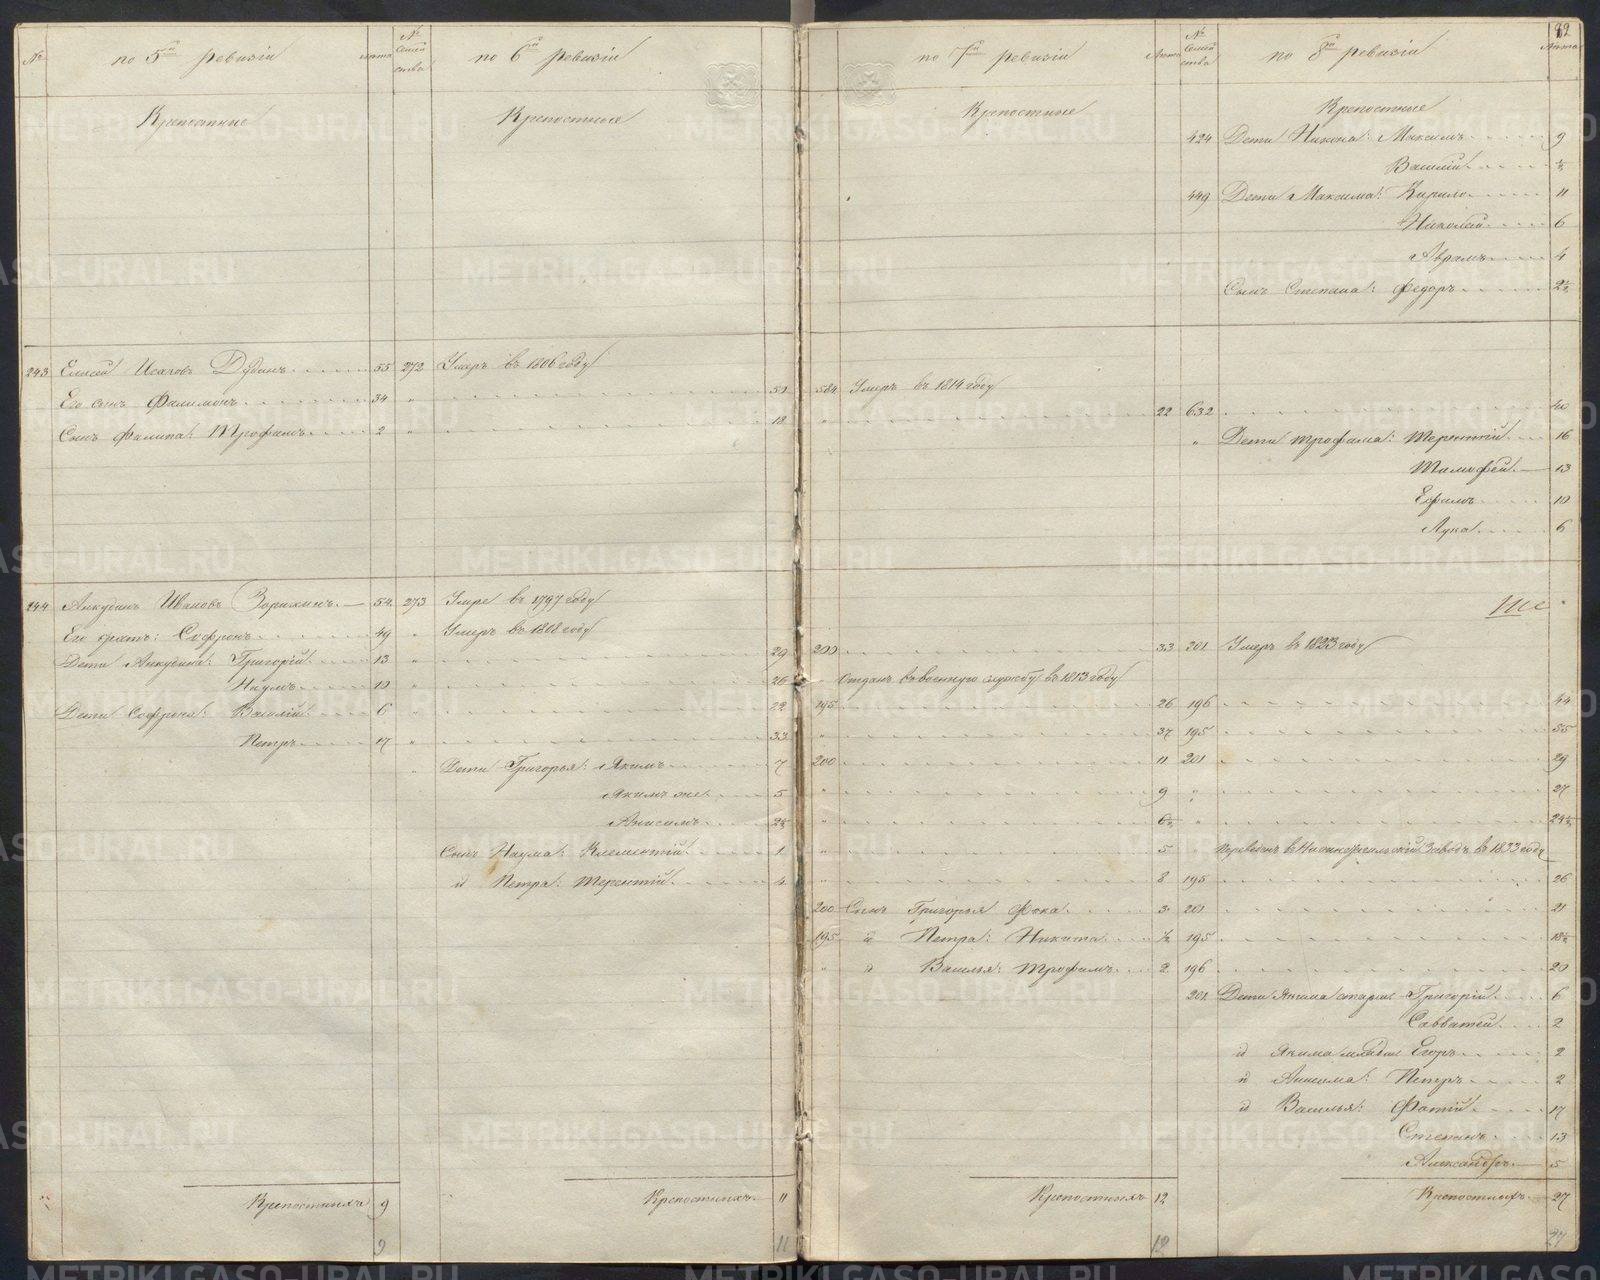 92
№ по 5й ревизіи лѣта № Семейства по 6й ревизіи по 7й ревизіи лѣта № Семейства по 8й ревизіи лѣта
Крепостные Крепостные Крепостные Крепостные
424 Дети Никона: Максимъ 9
Василій ½
449 Дети Максима: Кирило 11
Николай 6
Аврамъ 4
Сынъ Степана: Федоръ 2½
243 Елисей Исаковъ Дубинъ 55 272 Умеръ въ 1806 году
Его сынъ Филимонъ 34 " 52 584 Умеръ въ 1814 году
Сынъ Филипа: Трофимъ 2 " 18 " 22 632 40
" Дети Трофима: Терентій 16
Тимофей 13
Ефимъ 10
Лука 6
244 Анкудинъ Ивановъ 54 273 Умре въ 1797 году
Его братъ: Софронъ 49 " Умеръ въ 1808 году
Дети Анкудина: Григорій 13 " 29 200 33 201 Умеръ въ 1823 году
Наумъ 10 " 26 Отданъ въ военную службу въ 1813 году
Дети Софрона: Василій 6 " 22 195 26 196 44
Петръ 17 " 33 " 37 195 55
" Дети Григорья: Якимъ 7 200 11 201 29
Якимъ же 5 " 9 " 27
Анисимъ 2½ " 6½ " 24½
Сынъ Наума: Климентій 1 " 5 Переведенъ въ Заводъ въ 1833 году
и Петра: Терентій 4 " 8 195 26
200 Сынъ Григорья Фока 3 201 21
195 и Петра: Никита ½ 195 18½
" и Василья: Трофимъ 2 196 20
201 Дети Якима старш Григорій 6
Савватей 2
и Якима младш Егоръ 2
и Анисима: Петръ 2
и Василья: Фотій 17
Степанъ 13
Александръ 5
Крепостныхъ 9 Крепостныхъ 11 Крепостныхъ 12 Крепостныхъ 27
9 11 12 27
METRIKI.GASO-URAL.RU